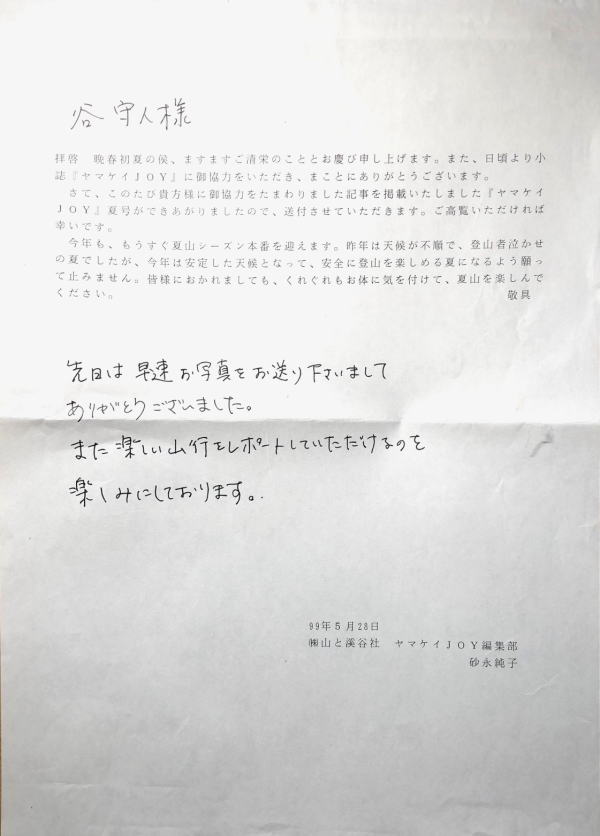 谷 守人様
拝啓　晩春初夏の侯、ますますご清栄のこととお慶び申し上げます。また、日頃より小
誌『ヤマケイＪＯＹ』に御協力をいただき、まことにありがとうございます。
　さて、このたび貴方様に御協力をたまわりました記事を掲載いたしました『ヤマケイ
ＪＯＹ』夏号ができあがりましたので、送付させていただきます。ご高覧いただければ
幸いです。
　今年も、もうすぐ夏山シーズン本番を迎えます。昨年は天候が不順で、登山者泣かせ
の夏でしたが、今年は安定した天候となって、安全に登山を楽しめる夏になるよう願っ
て止みません。皆様におかれましても、くれぐれもお体に気を付けて、夏山を楽しんで
ください。　敬具
先日は 早速 お写真を お送り下さいまして
ありがとうございました。
また 楽しい山行をレポートしていただけるのを
楽しみにしております。
99年５月28日
㈱山と溪谷社　ヤマケイＪＯＹ編集部
砂永純子